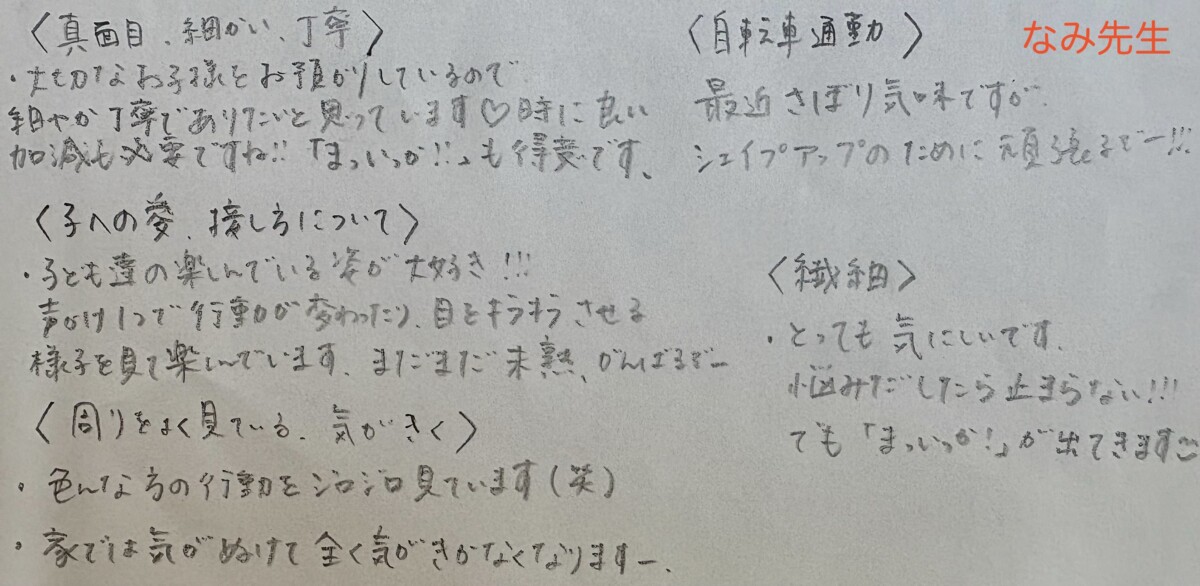 〈真面目、細かい、丁寧〉
・大切なお子様をお預かりしているので
細やか丁寧でありたいと思っています♡時に良い
加減も必要ですね!!「まっいっか!!」も得意です、
〈子への愛、接し方について〉
・子ども達の楽しんでいる姿が大好き!!!
声がけ1つで行動が変わったり、目をキラキラさせる
様子を見て楽しんでいます、まだまだ未熟、がんばるぞー
〈周りをよく見ている、気がきく〉
・色んな方の行動をジロジロ見ています(笑)
・家では気がぬけて全く気がきかなくなりますー、
なみ先生
〈自転車通勤〉
最近さぼり気味ですが
シェイプアップのために頑張るぞー!!!
〈繊細〉
・とっても気にしいです、
悩みだしたら止まらない!!!
でも「まっいっか!」が出てきます☺